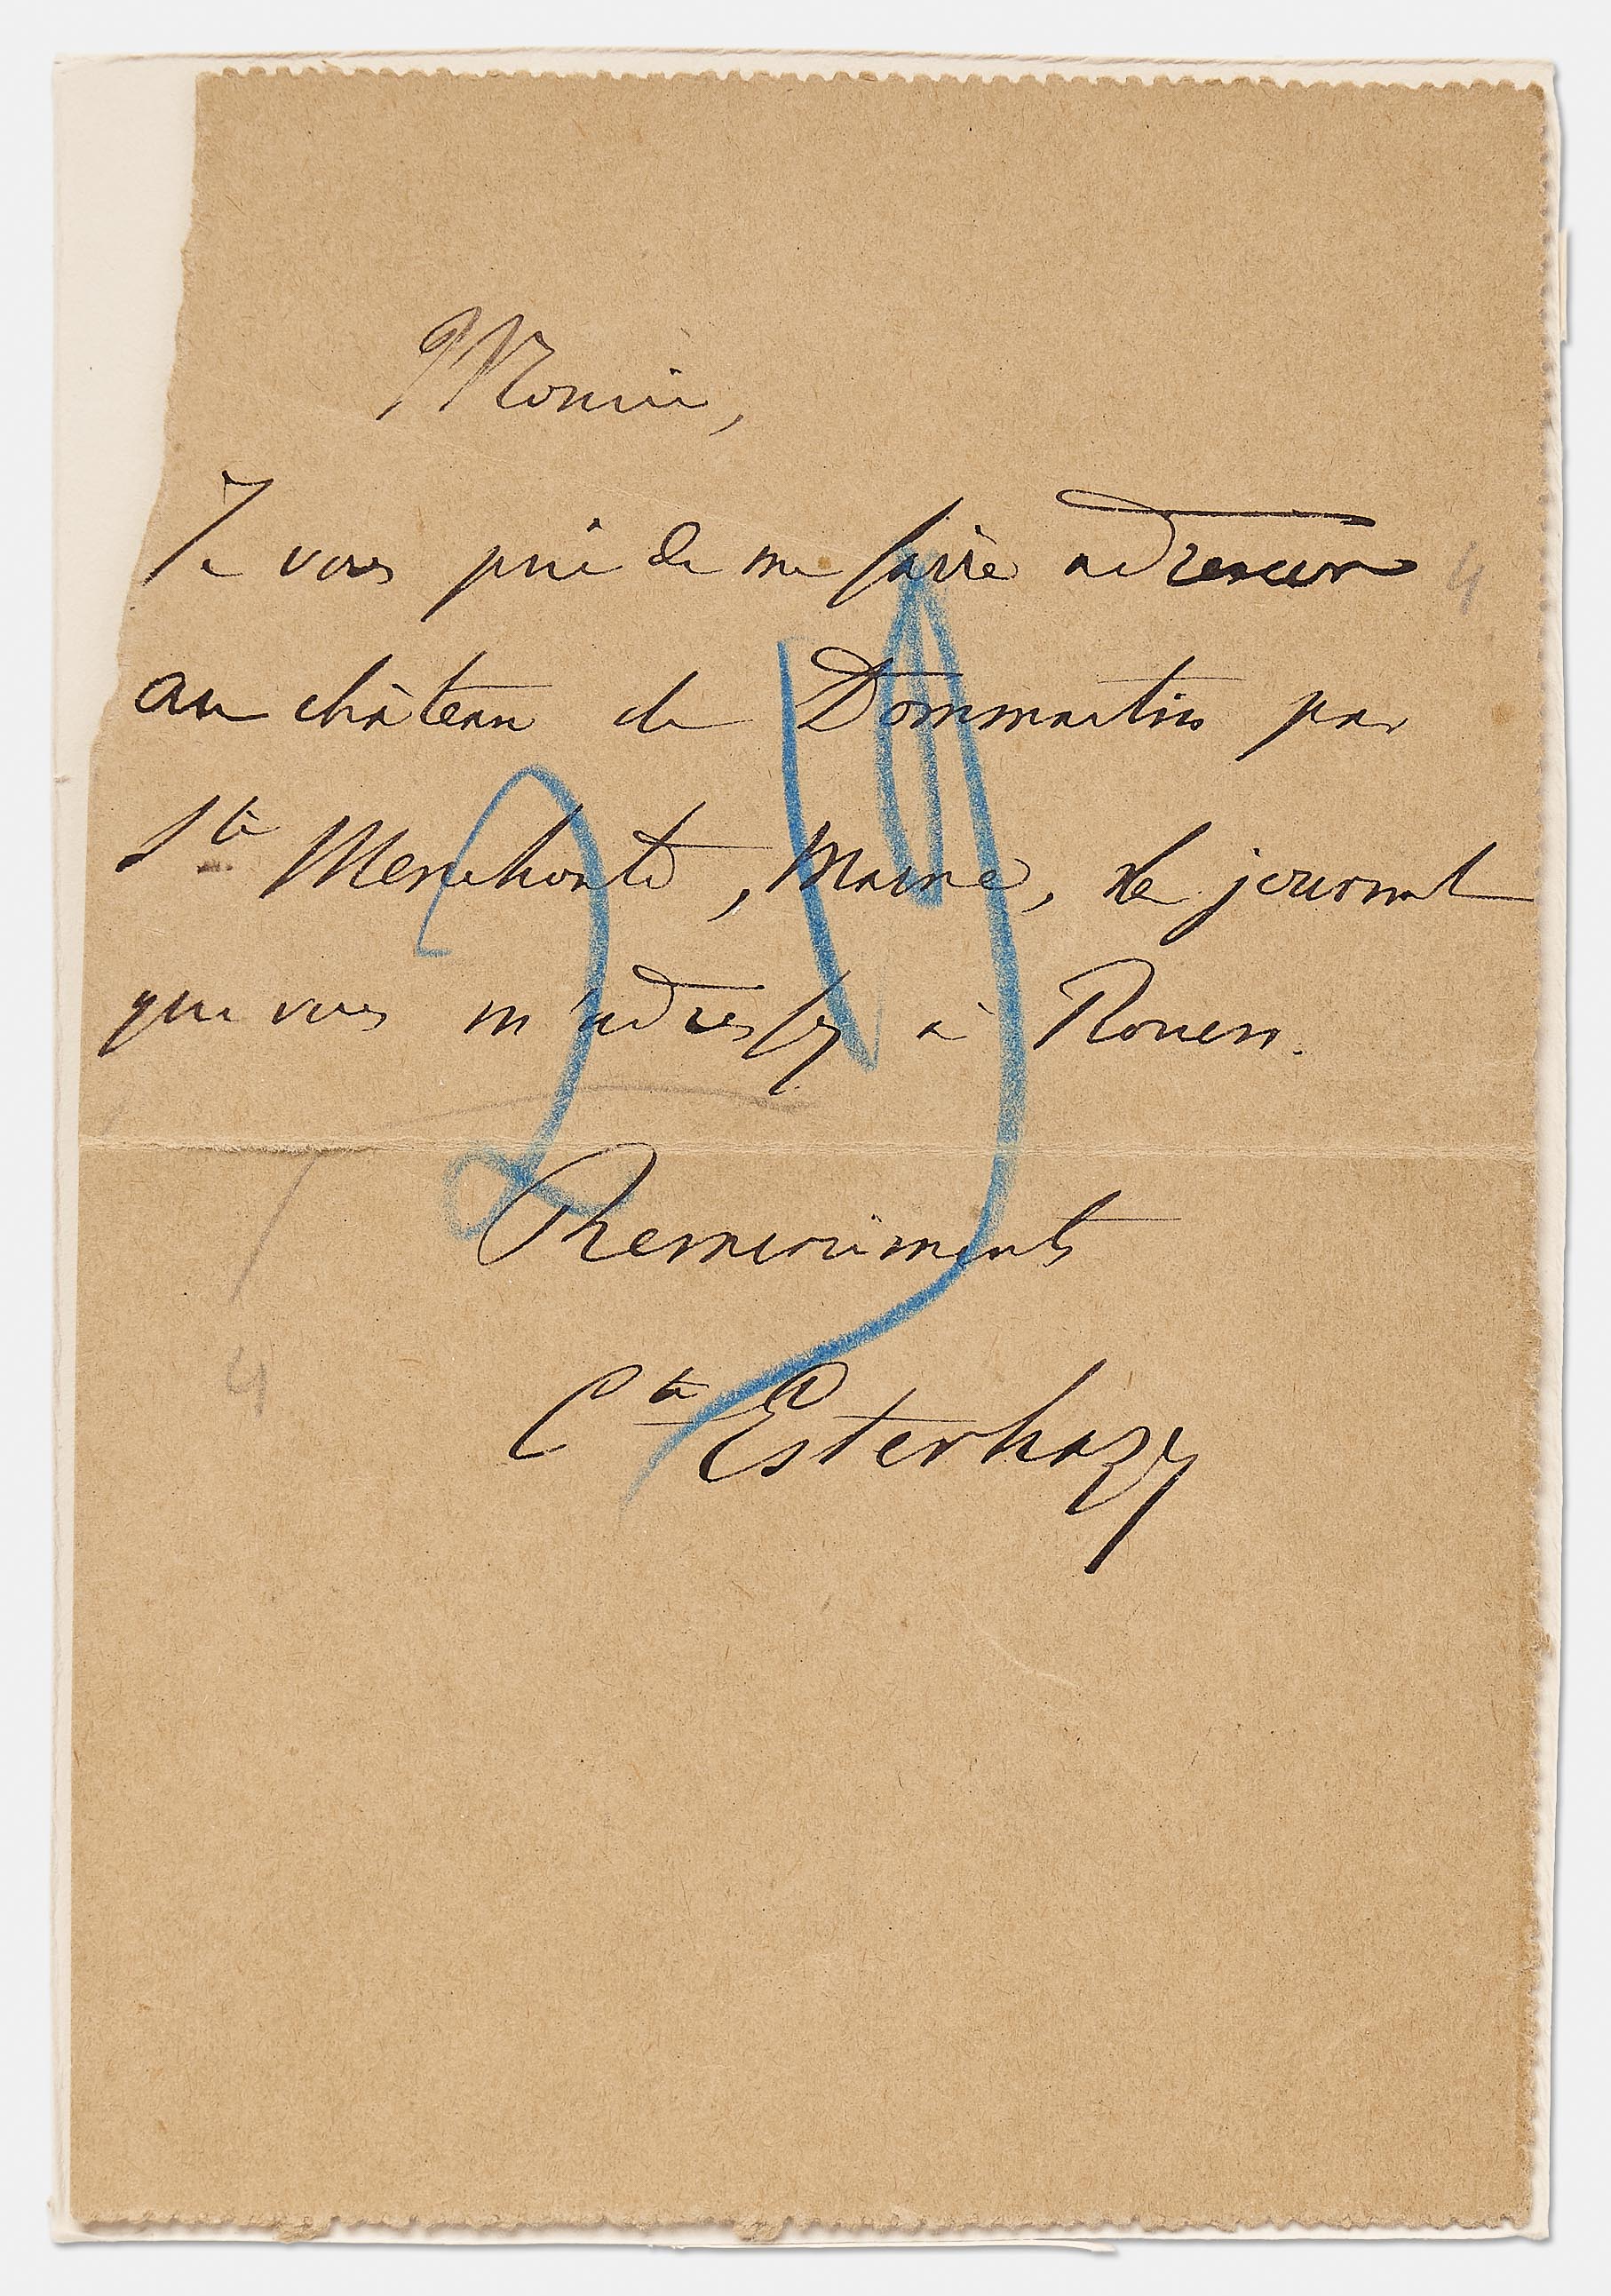 Monsieur,
Je vous prie de me faire adresser
au château de Dommartin par
Ste Menehould, Marne, le journal
que vous m'adressez à Rouen.
Remerciements
Cte Esterhazy
4
4